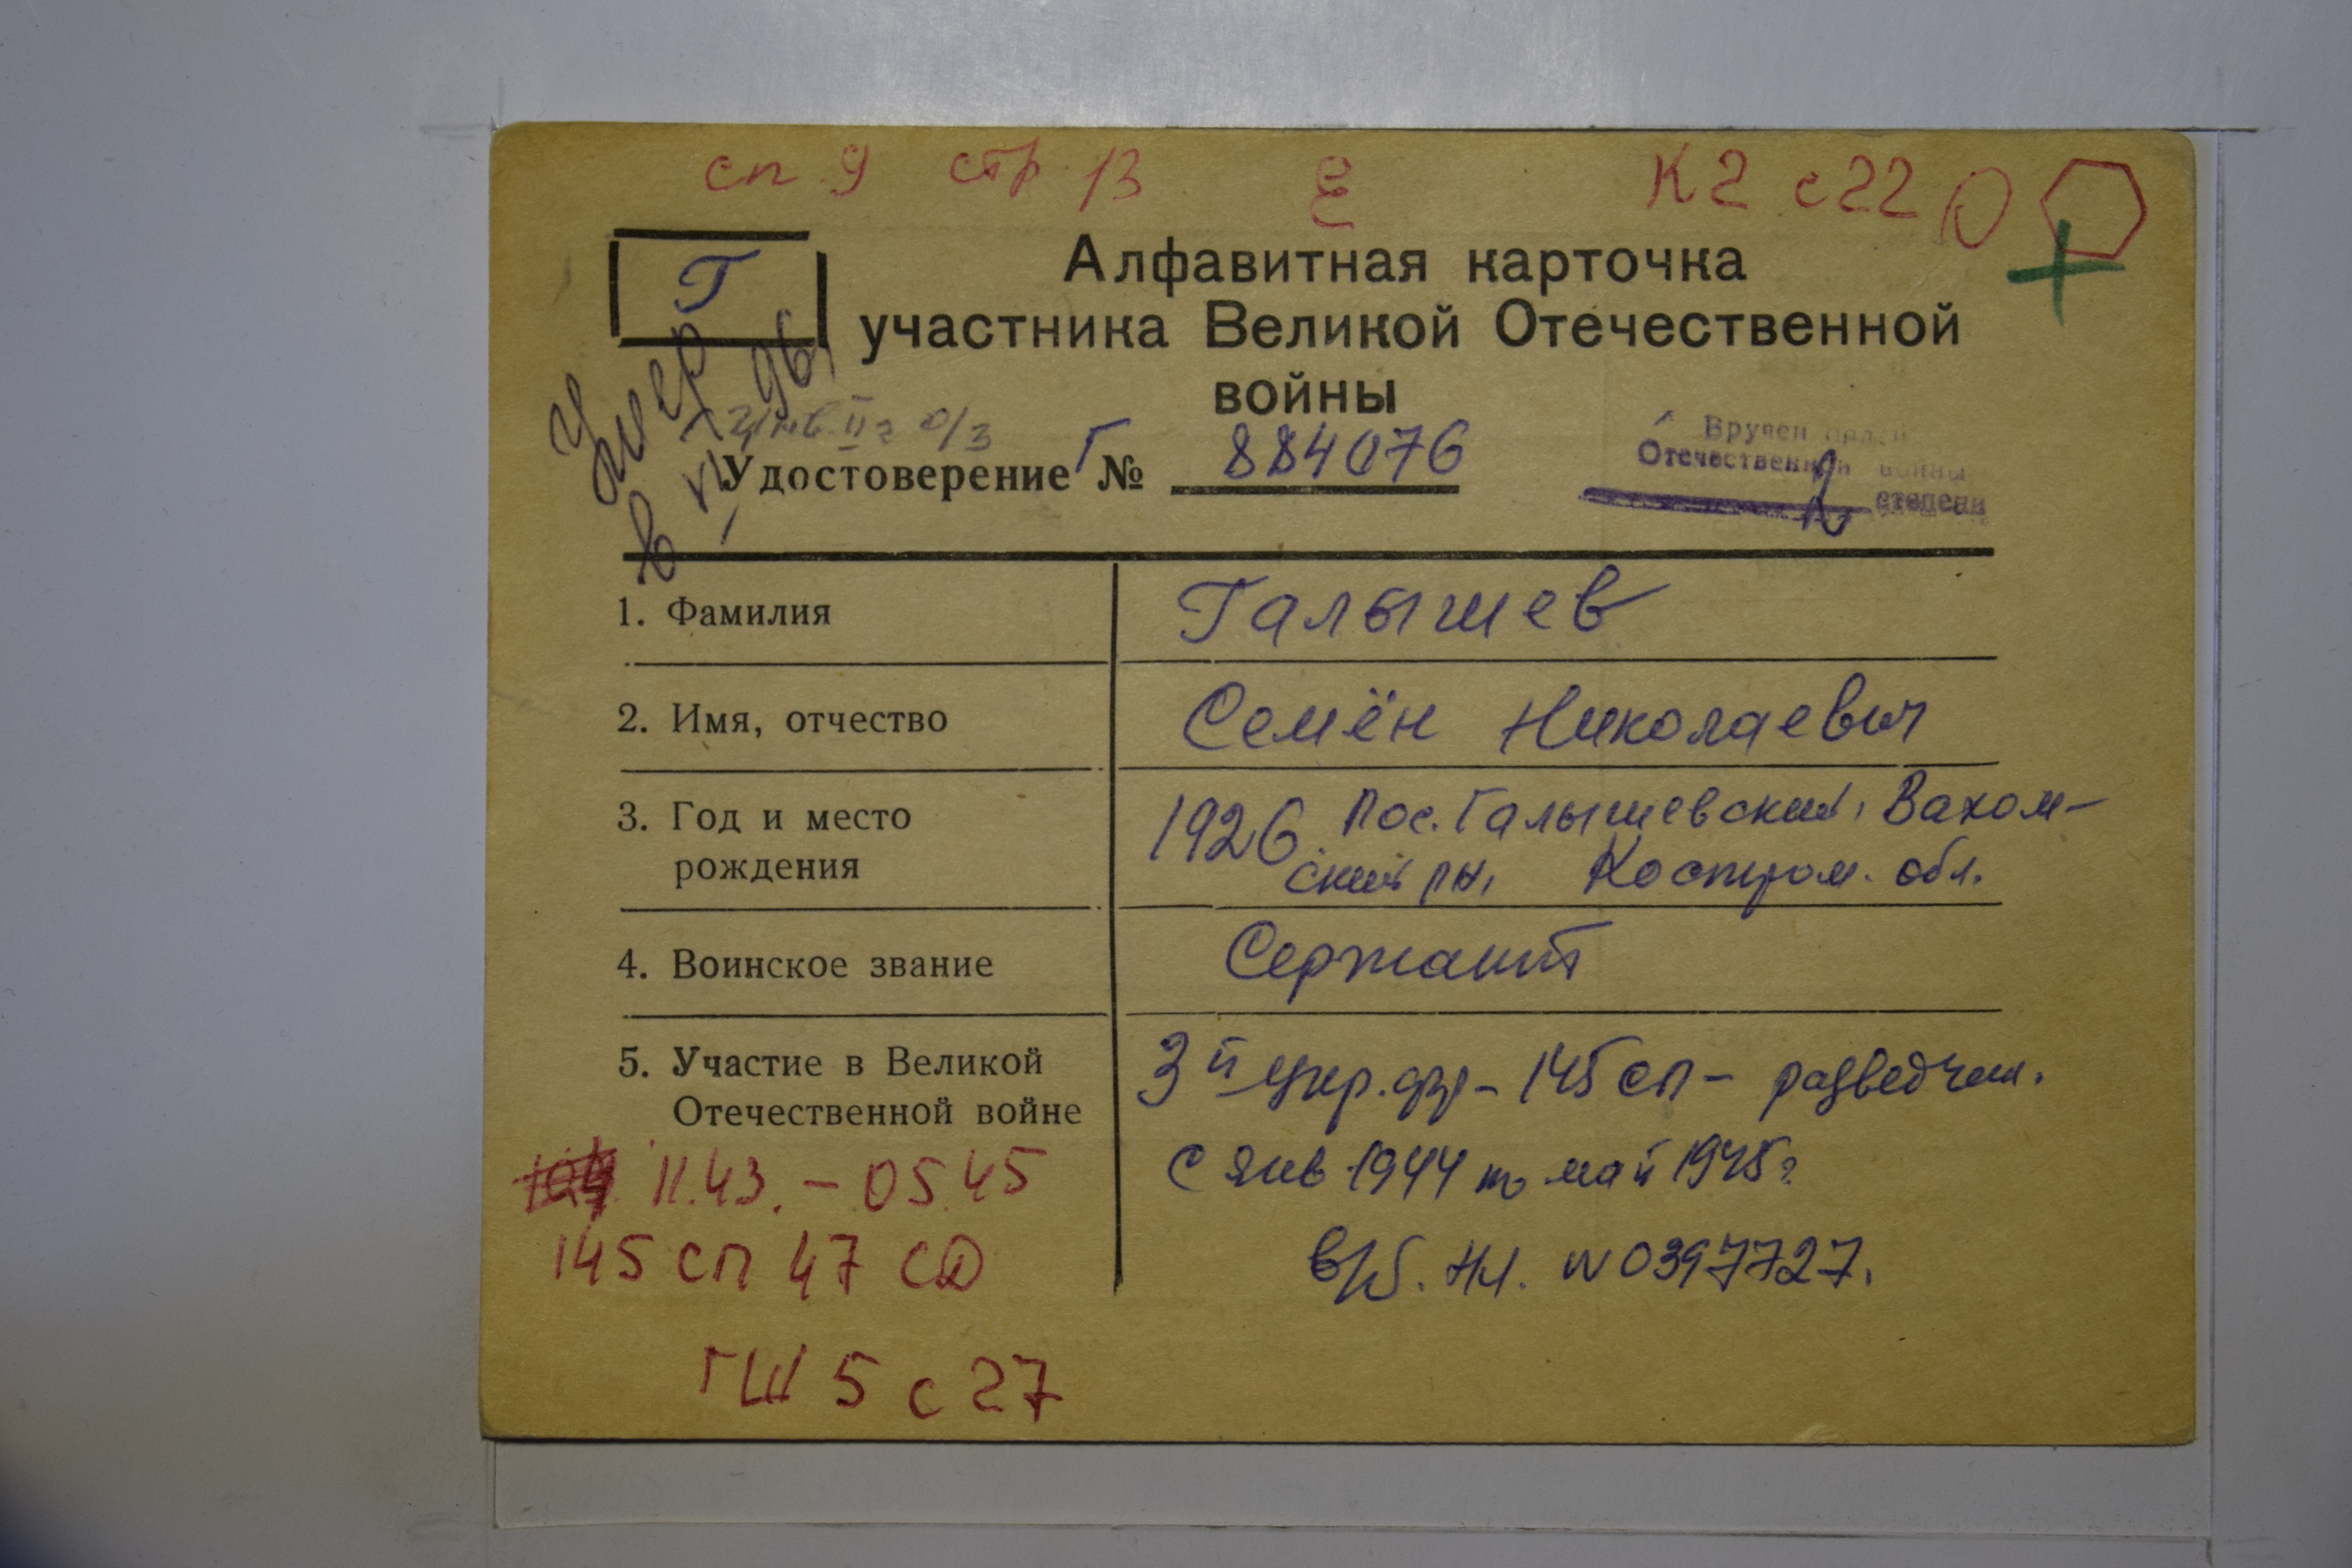 сп 9 стр 13 Е К2 с22
Г
Алфавитная карточка
участника Великой Отечественной
войны
Умер
в VI 96г
инв. II г о/з
Удостоверение Г № 884076
Вручен орден
Отечественной войны
2 степени
1. Фамилия Галышев
2. Имя, отчество Семён Николаевич
3. Год и место
рождения
1926 Пос. Галышевский, Вахом-
ский рн, Костром. обл.
4. Воинское звание Сержант
5. Участие в Великой
Отечественной войне
3й укр. фр - 145 сп - разведчик.
с янв 1944 по май 1945г
в/б. НI. N 0397727.
11.43. - 05.45
145 сп 47 сд
ГШ 5 с 27